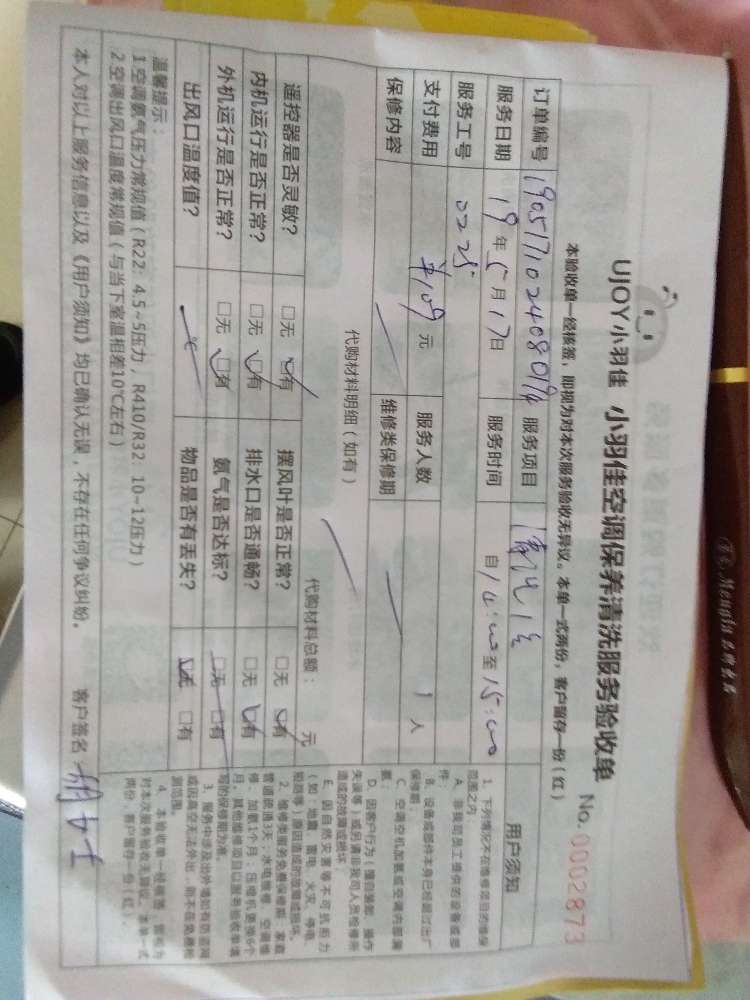 UJOY小羽佳 小羽佳空调保养清洗服务验收单 No. 0002873
本验收单一经核签，即视为对本次服务验收无异议。本单一式两份，客户留存一份（红）
订单编号 服务项目
服务日期 19年5月17日 服务时间 自14:00至15:00
服务工号 0225
支付费用 ¥109元 服务人数 1人
保修内容 维修类保修期
代购材料明细（如有）
代购材料总额： 元
遥控器是否灵敏？ □无 □有 摆风叶是否正常？ □无 □有
内机运行是否正常？ □无 □有 排水口是否通畅？ □无 □有
外机运行是否正常？ □无 □有 氨气是否达标？ □无 □有
出风口温度值？ 物品是否有丢失？ □无 □有
温馨提示：
1 空调氨气压力常规值（R22：4.5~5压力，R410/R32：10~12压力）
2 空调出风口温度常规值（与当下室温相差10℃左右）
本人对以上服务信息以及《用户须知》均已确认无误，不存在任何争议纠纷。 客户签名
用户须知
1、下列情况不在维修项目的维保
范围之内：
A、非我司员工提供的设备或部
件；
B、设备或部件本身已经超过出厂
保修期；
C、空调空机加氨或空调内部漏
氨；
D、因客户行为（擅自装卸、操作
失误等）或另请非我司人员检修所
造成的故障或损坏；
E、因自然灾害等不可抗拒力
（如：地震、雷电、火灾、停电、
2、维修类服务免费保修期：家庭
管道疏通3天；水电维修、空调维
修、加氨1个月；压缩机更换6个
月。其他维修项目以服务验收单填
写的保修期为准。
3、服务中涉及出外墙如有防盗网
或因高空无法外出，则不在免费检
测范围。
4、本验收单一经核签，即视为
对本次服务验收无异议。本单一式
两份，客户留存一份（红）。
Mengjia